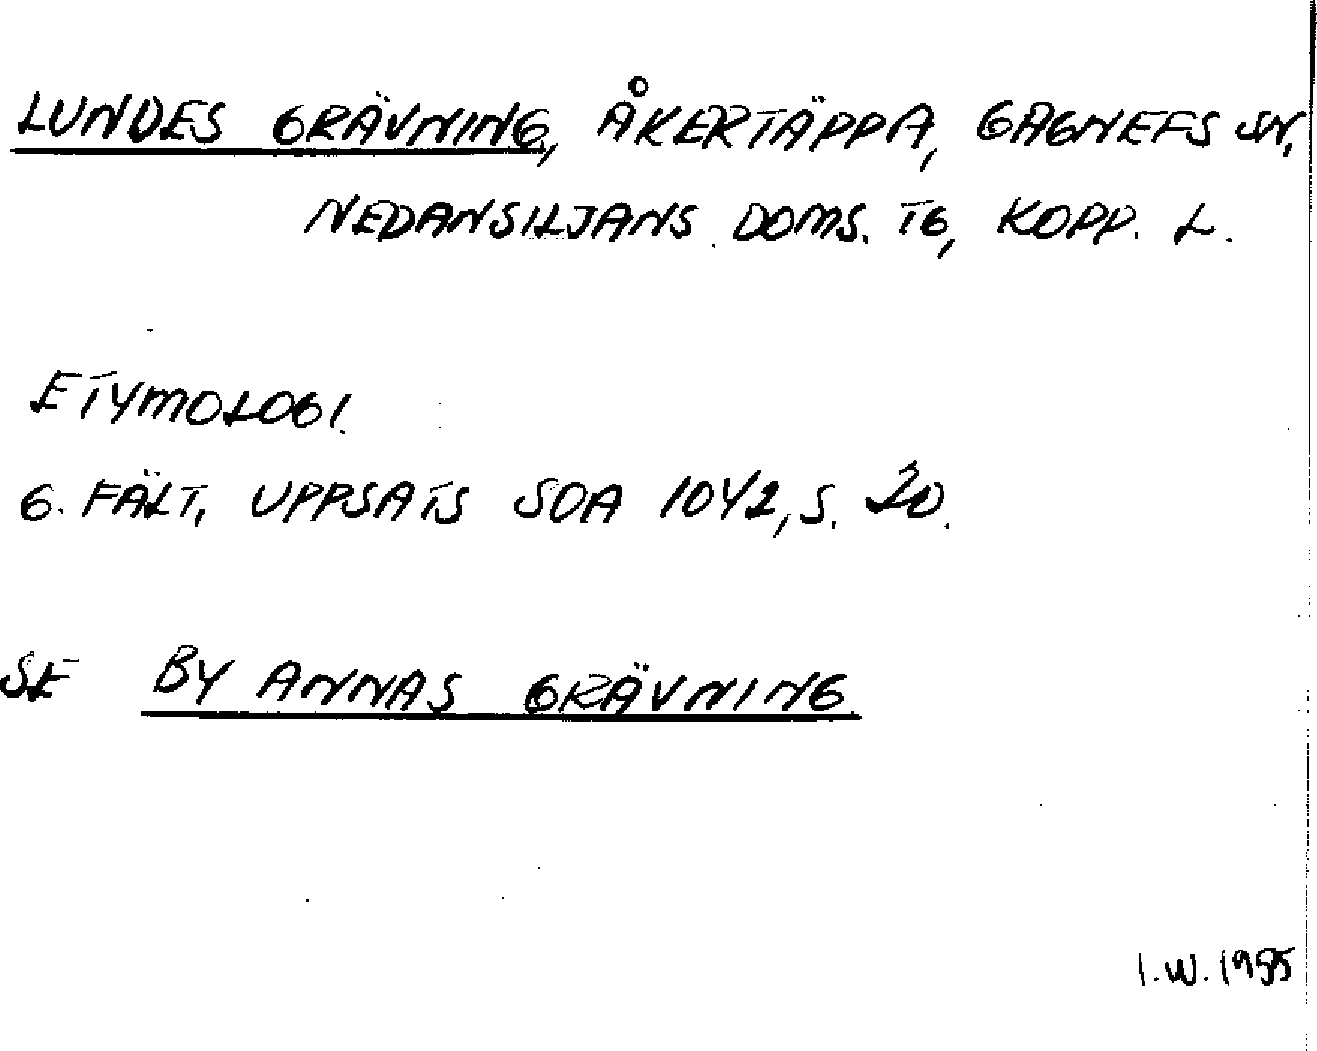 LUNDES GRÄVNING, ÅKERTÄPPA, GAGNEFS SN.
NEDANSILJANS DOMS. TG, KOPP. L.
ETYMOLOGI.
G. FÄLT, UPPSATS SOA 1042, S. 20.
SE BY ANNAS GRÄVNING.
I.W. 1955